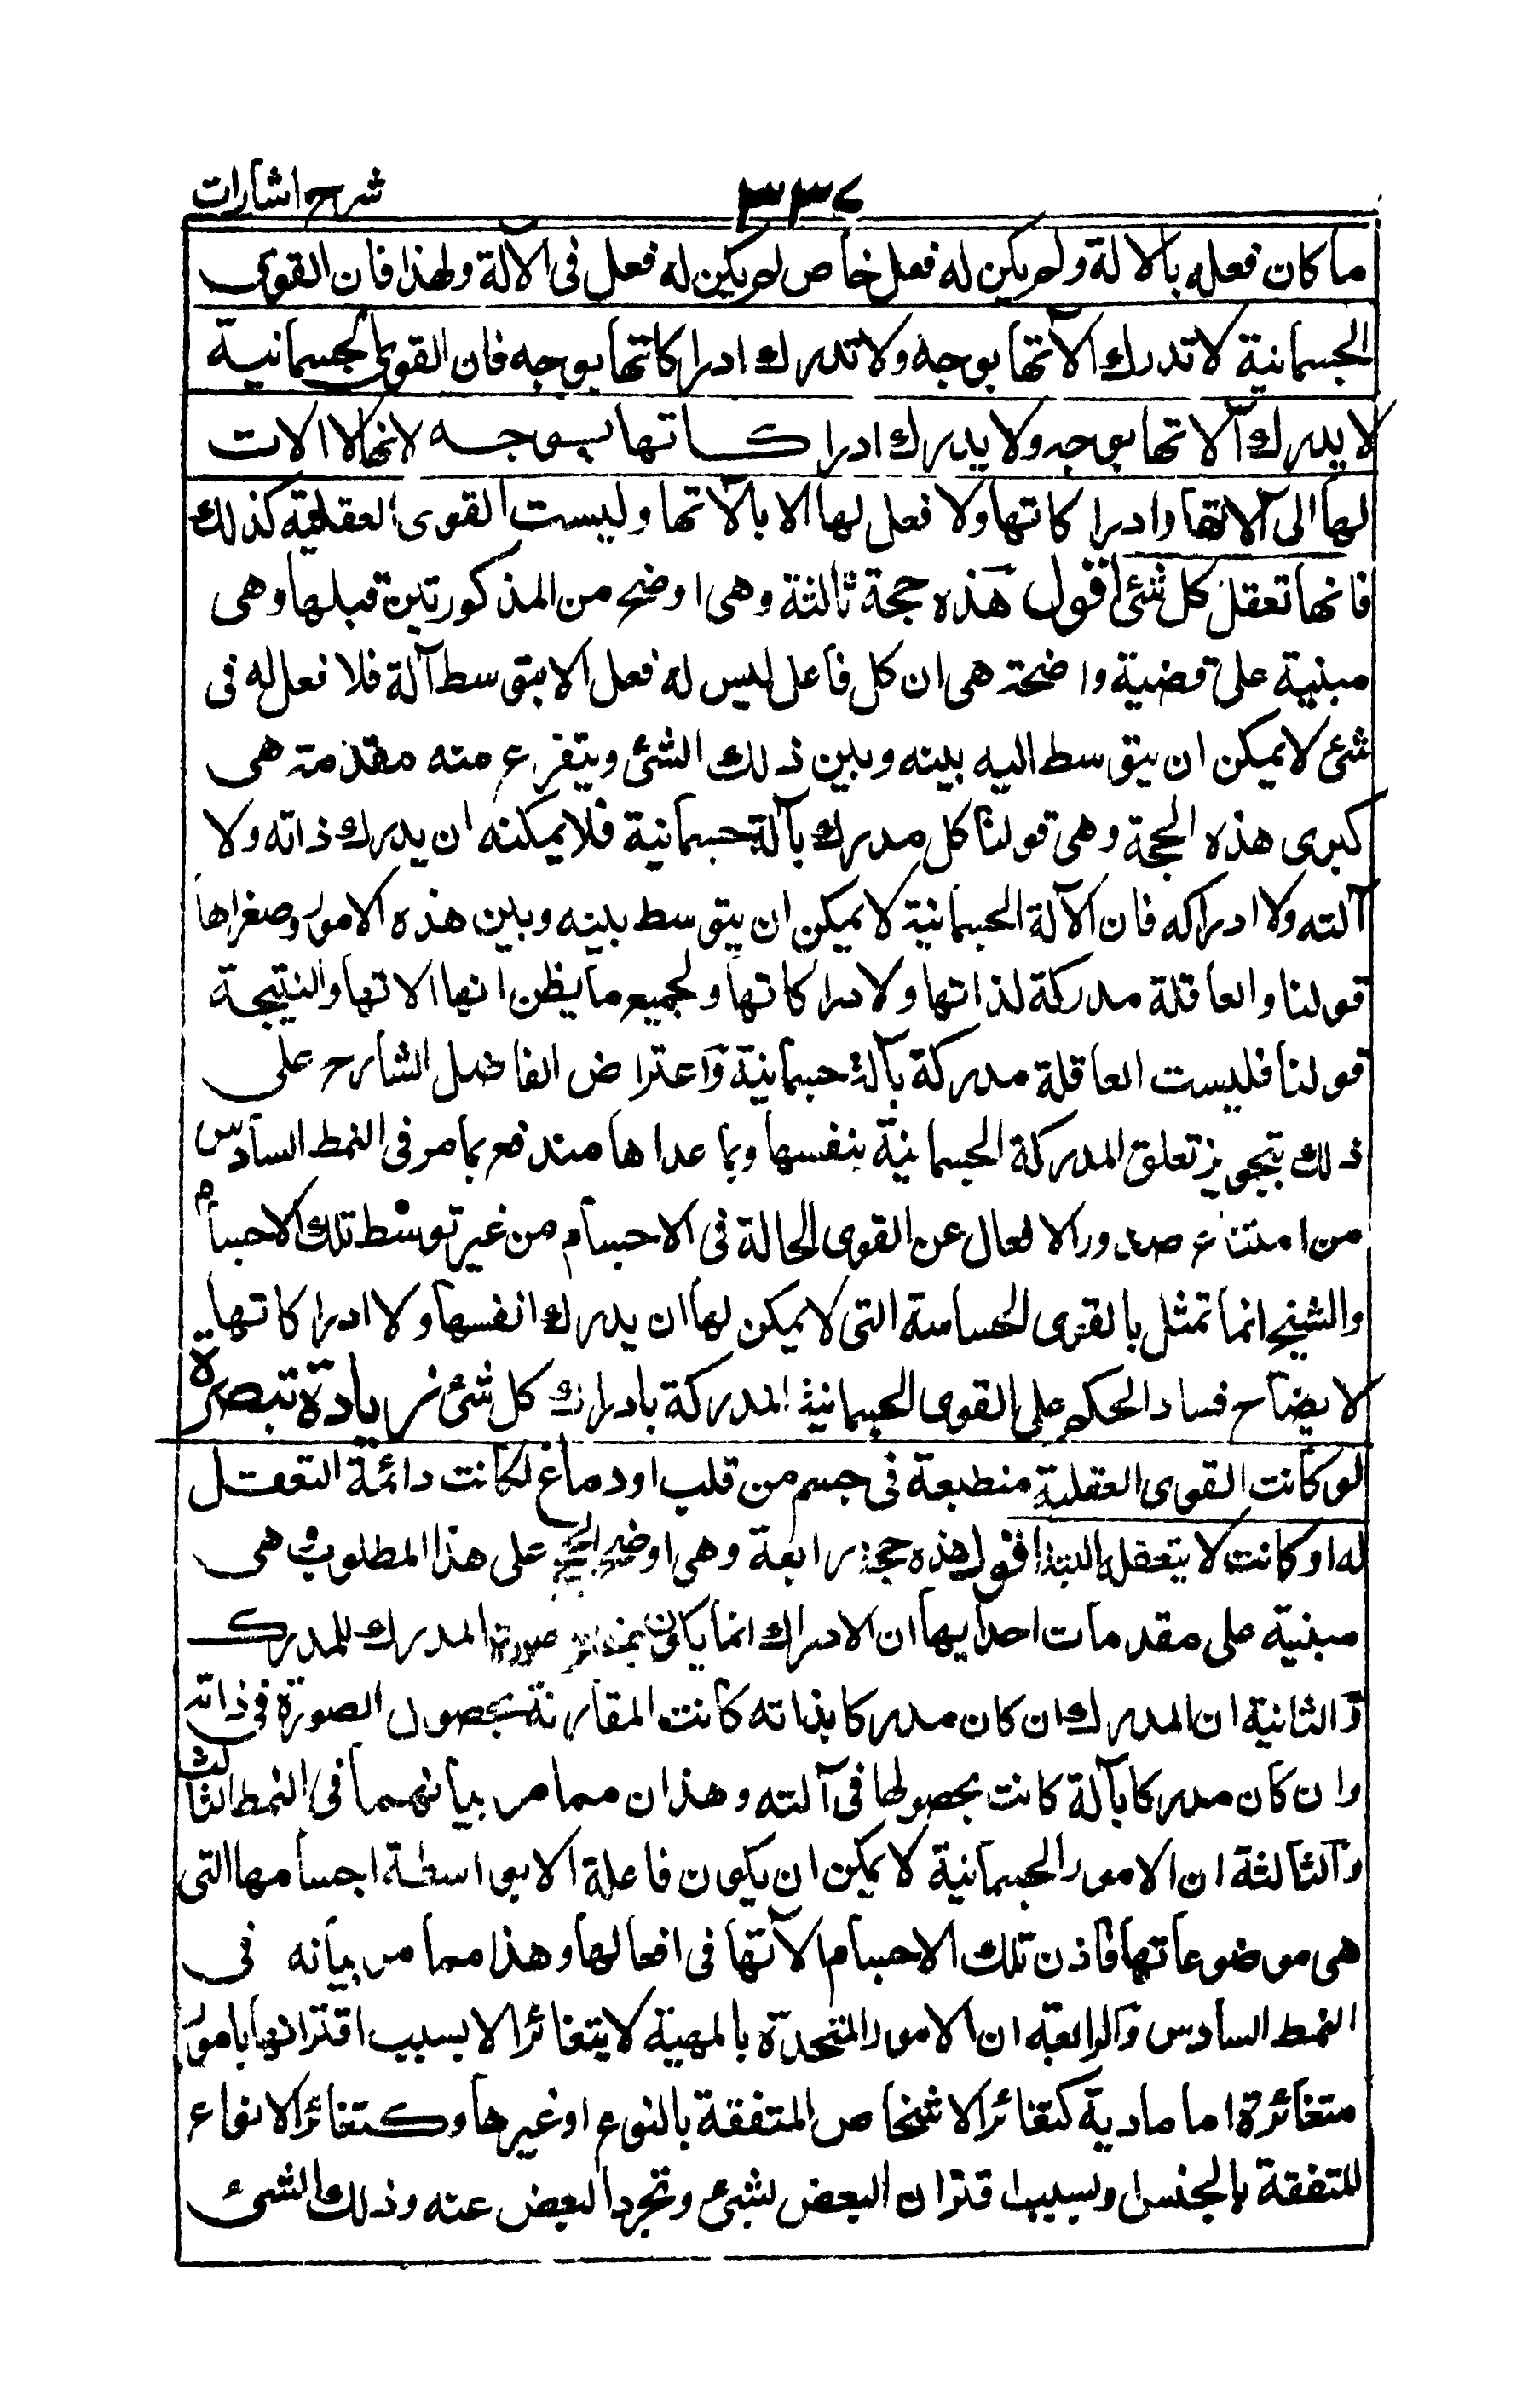 شرح اشارات
٣٣٧
ما كان فعله بالالة ولم يكن له فعل خاص لم يكن له فعل فى الآلة ولهذا فان القوى
الجسمانية لا تدرك الآتها بوجه ولا تدرك ادراكاتها بوجه فان القوى الجسمانية
لا يدرك آلاتها بوجه ولا يدرك ادراكاتها بوجه لانها لا الات
لها الى آلاتها وادراكاتها ولا فعل لها الا بالآتها وليست القوى العقلية كذلك
فانها تعقل كل شئ اقول هذه حجة ثالثة وهى اوضح من المذكورتين قبلها وهى
مبنية على قضية واضحة هى ان كل فاعل ليس له فعل الا بتوسط آلة فلا فعل له فى
شئ لا يمكن ان يتوسط اليه بينه وبين ذلك الشئ ويتفرع منه مقدمة هى
كبرى هذه الحجة وهى قولنا كل مدرك بآلة جسمانية فلا يمكنه ان يدرك ذاته ولا
آلته ولا ادراكه فان الآلة الجسمانية لا يمكن ان يتوسط بينه وبين هذه الامور وصغراها
قولنا والعاقلة مدركة لذاتها ولادراكاتها ولجميع ما يظن انها الاتها والنتيجة
قولنا فليست العاقلة مدركة بآلة جسمانية واعتراض الفاضل الشارح على
ذلك بتجويز تعلق المدركة الجسمانية بنفسها وبما عداها مندفع بما مر فى النمط السادس
من امتناع صدور الافعال عن القوى الحالة فى الاجسام من غير توسط تلك الاجسام
والشيخ انما تمثل بالقوى الحساسة التى لا يمكن لها ان يدرك انفسها ولا ادراكاتها
لايضاح فساد الحكم على القوى الجسمانية المدركة بادراك كل شئ زيادة تبصرة
لو كانت القوى العقلية منطبعة فى جسم من قلب او دماغ لكانت دائمة التعقل
له او كانت لا يتعقل البتة اقول هذه حجة رابعة وهى اوضح الحجج على هذا المطلوب هى
مبنية على مقدمات احدايها ان الادراك انما يكون بمقارنة صورة المدرك للمدرك
والثانية ان المدرك ان كان مدركا بذاته كانت المقارنة بحصول الصورة فى ذاته
وان كان مدركا بآلة كانت بحصولها فى آلته وهذان مما مر بيانهما فى النمط الثالث
والثالثة ان الامور الجسمانية لا يمكن ان يكون فاعلة الا بواسطة اجسامها التى
هى موضوعاتها فاذن تلك الاجسام الآتها فى افعالها وهذا مما مر بيانه فى
النمط السادس والرابعة ان الامور المتحدة بالمهية لا يتغائر الا بسبب اقترانها بامور
متغائرة اما مادية كتغائر الاشخاص المتفقة بالنوع او غيرها وكتغائر الانواع
المتفقة بالجنس او بسبب اقتران البعض بشئ وتجرد البعض عنه وذلك الشئ